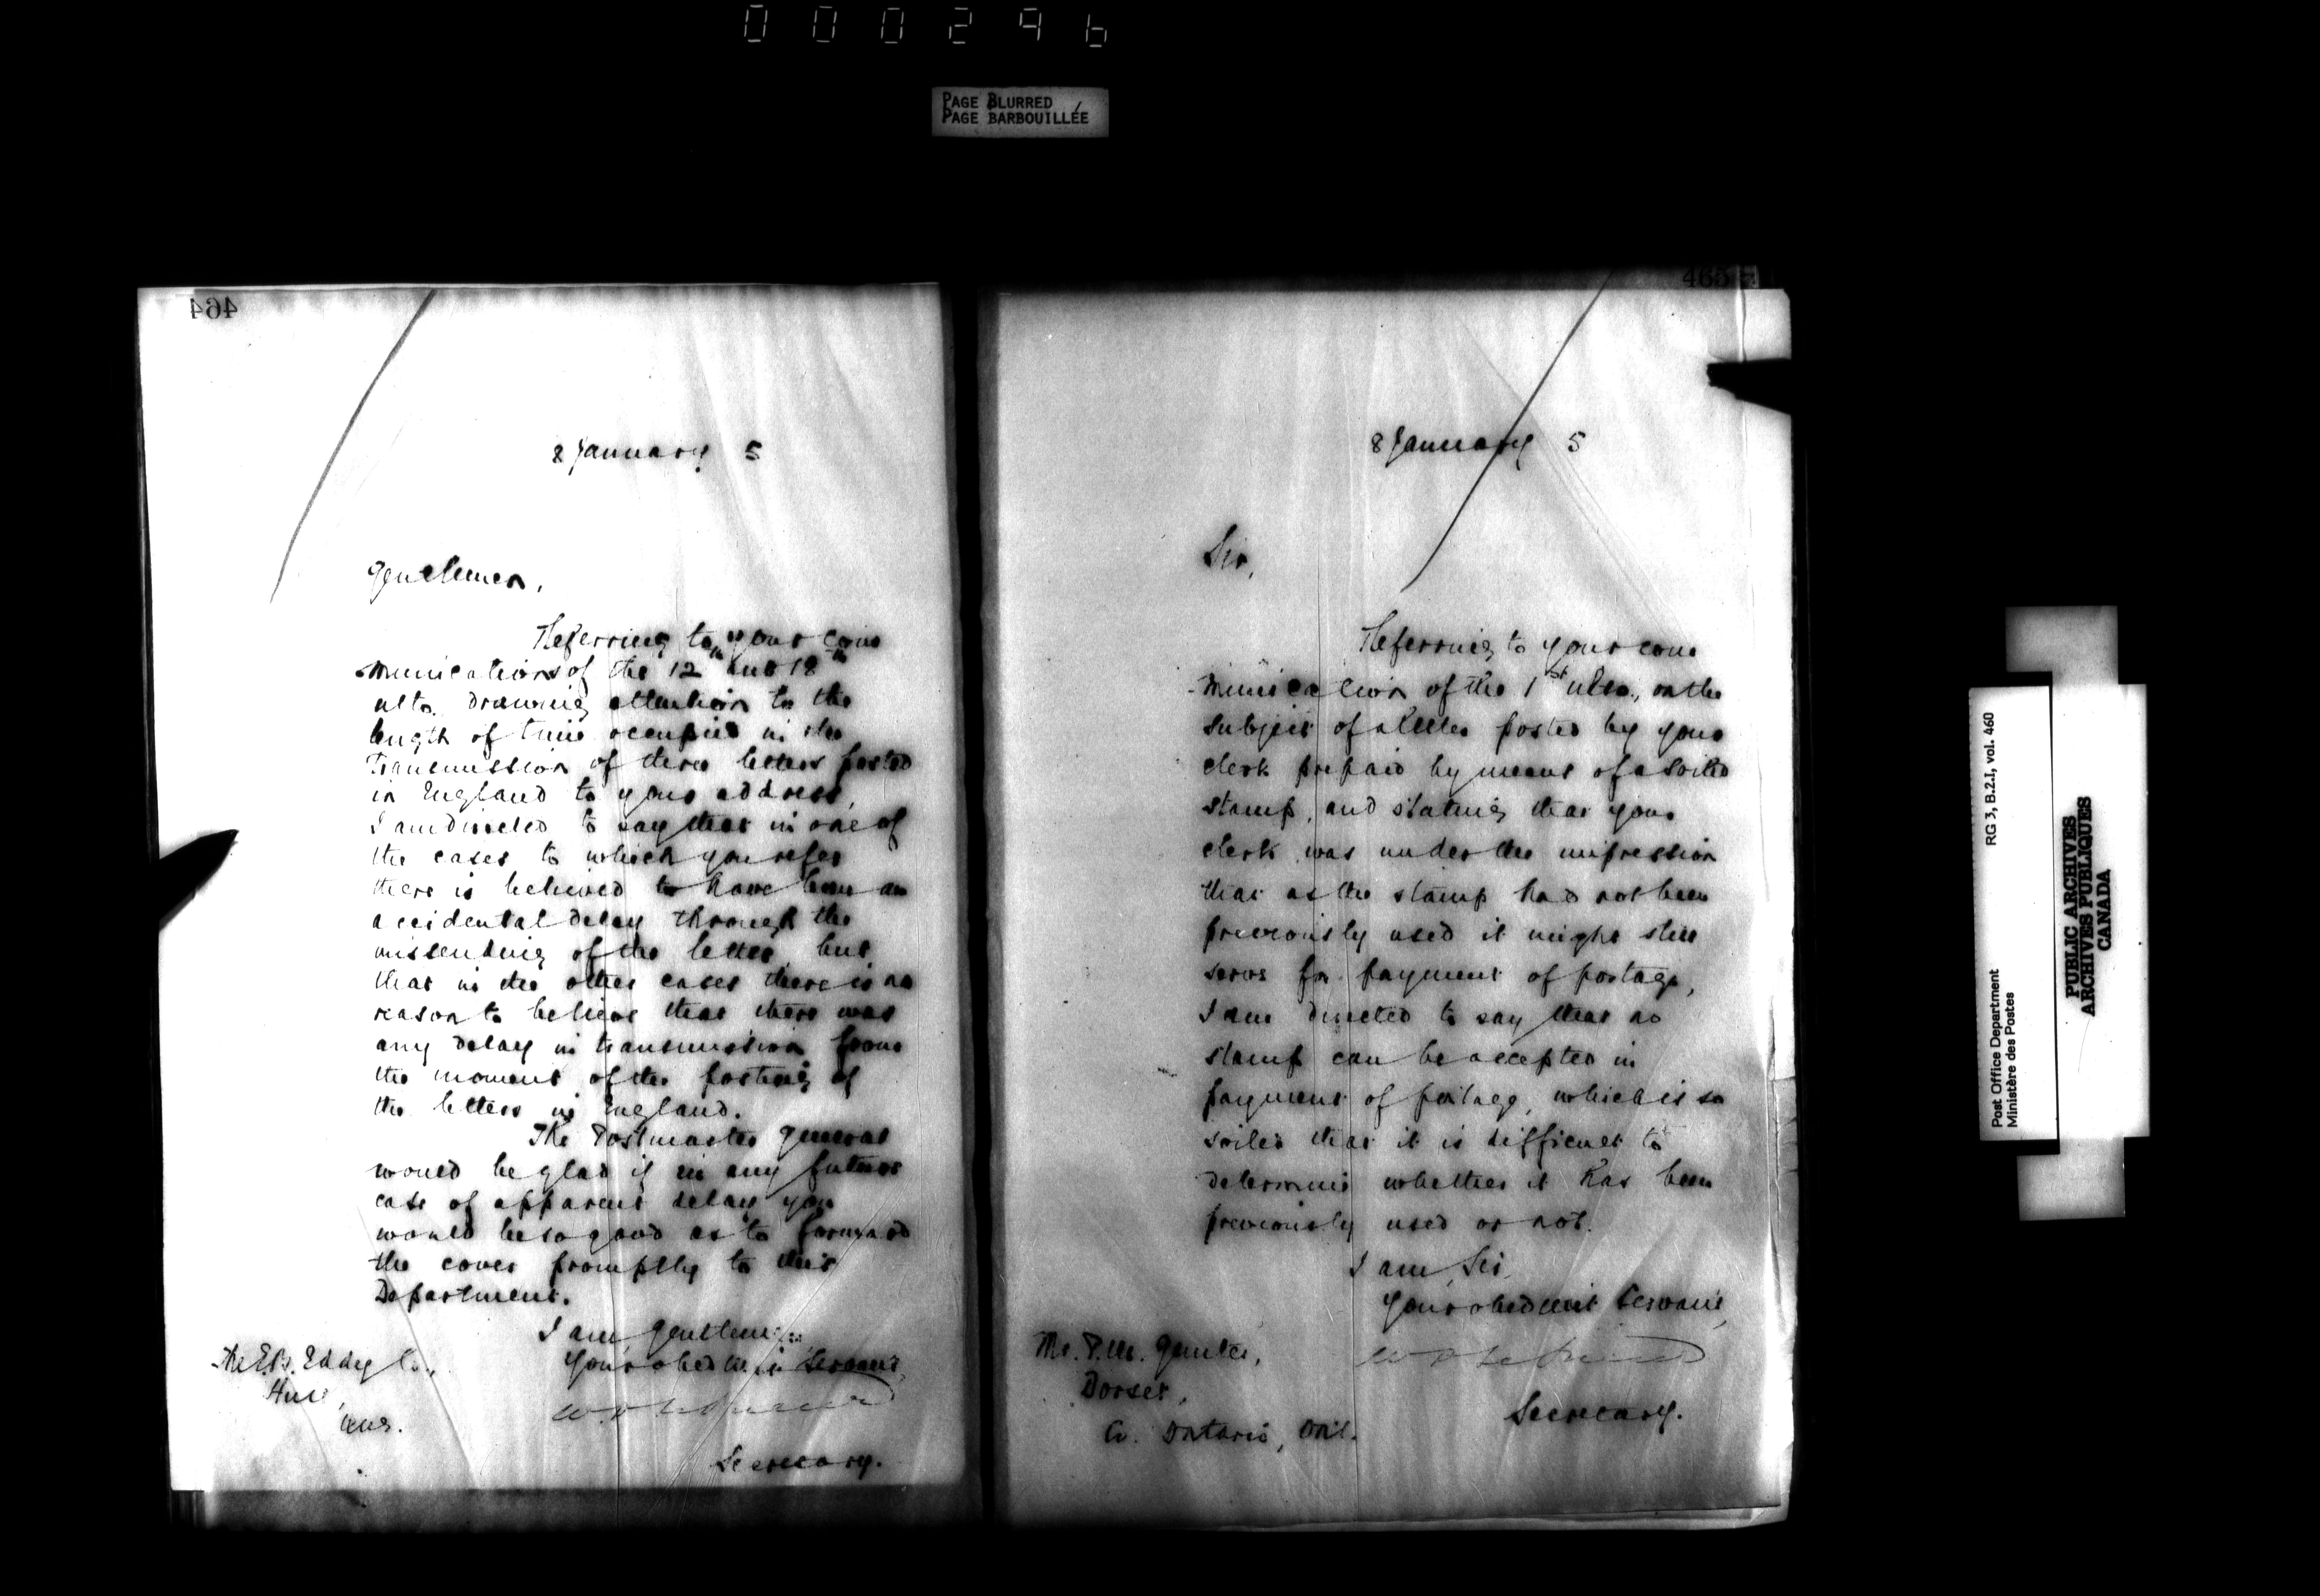 000296
PAGE BLURRED
PAGE BARBOUILLÉE
464
8 January 5
Gentlemen,
Referring to your com
munications of the 12th and 18th
ulto. drawing attention to the
length of time occupied in the
transmission of three letters posted
in England to your address,
I am directed to say that in one of
the cases to which you refer
there is believed to have been an
accidental delay through the
missending of the letter, but
that in the other cases there is no
reason to believe that there was
any delay in transmission from
the moment of the posting of
the letters in England.
The Postmaster General
would be glad if in any future
case of apparent delay you
would be so good as to forward
the cover promptly to this
Department.
I am, Gentlemen,
Your obedient Servant,
Secretary.
The E.B. Eddy Co.,
Hull,
Que.
465
8 January 5
Sir,
Referring to your com
munication of the 1st ulto., on the
subject of a letter posted by your
clerk prepaid by means of a soiled
stamp, and stating that your
clerk was under the impression
that as the stamp had not been
previously used it might still
serve for payment of postage,
I am directed to say that no
stamp can be accepted in
payment of postage, which is so
soiled that it is difficult to
determine whether it has been
previously used or not.
I am, Sir,
Your obedient Servant,
Secretary.
Mr.
Dorset,
Co. Ontario, Ont.
Post Office Department
Ministère des Postes
RG 3, B.2.I, vol. 460
PUBLIC ARCHIVES
ARCHIVES PUBLIQUES
CANADA